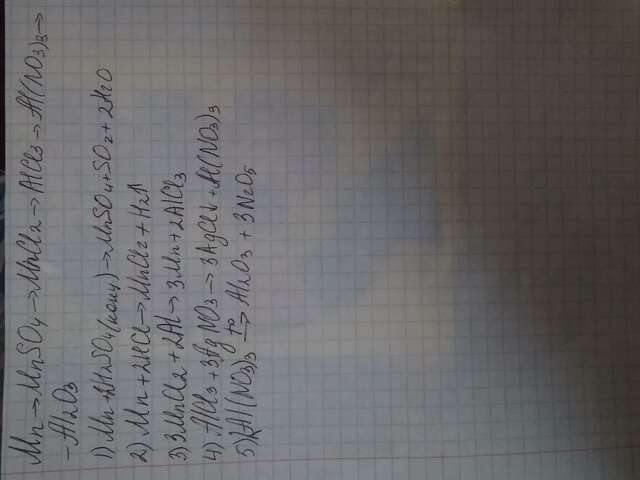 Mn→MnSO4→MnCl2→AlCl3→Al(NO3)3→
-Al2O3
1) Mn+2H2SO4(конц)→MnSO4+SO2+2H2O
2) Mn+2HCl→MnCl2+H2↑
3) 3MnCl2+2Al→3Mn+2AlCl3
4) AlCl3+3AgNO3→3AgCl↓+Al(NO3)3
5) 2Al(NO3)3 t°→ Al2O3+3N2O5